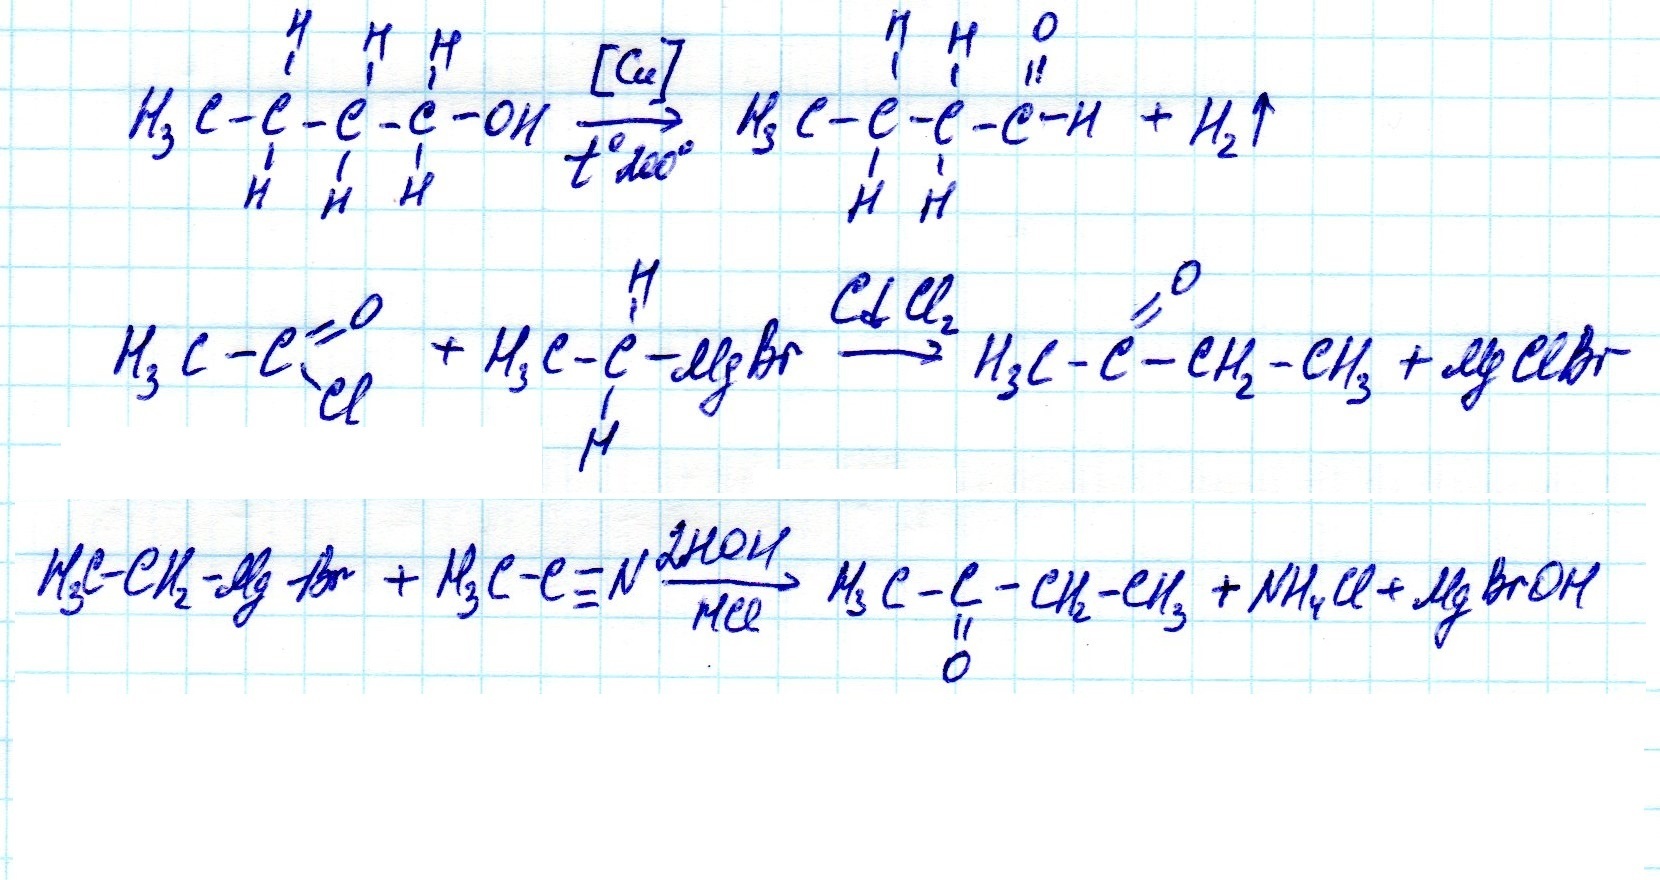 H H H H H O
H₃C-C-C-C-OH [Cu] → t° 200° H₃C-C-C-C-H + H₂↑
H H H H H
H O
H₃C-C=O Cl + H₃C-C-MgBr CdCl₂ → H₃C-C-CH₂-CH₃ + MgClBr
H
H₃C-CH₂-Mg-Br + H₃C-C≡N 2HOH → HCl H₃C-C-CH₂-CH₃ + NH₄Cl + MgBrOH
O